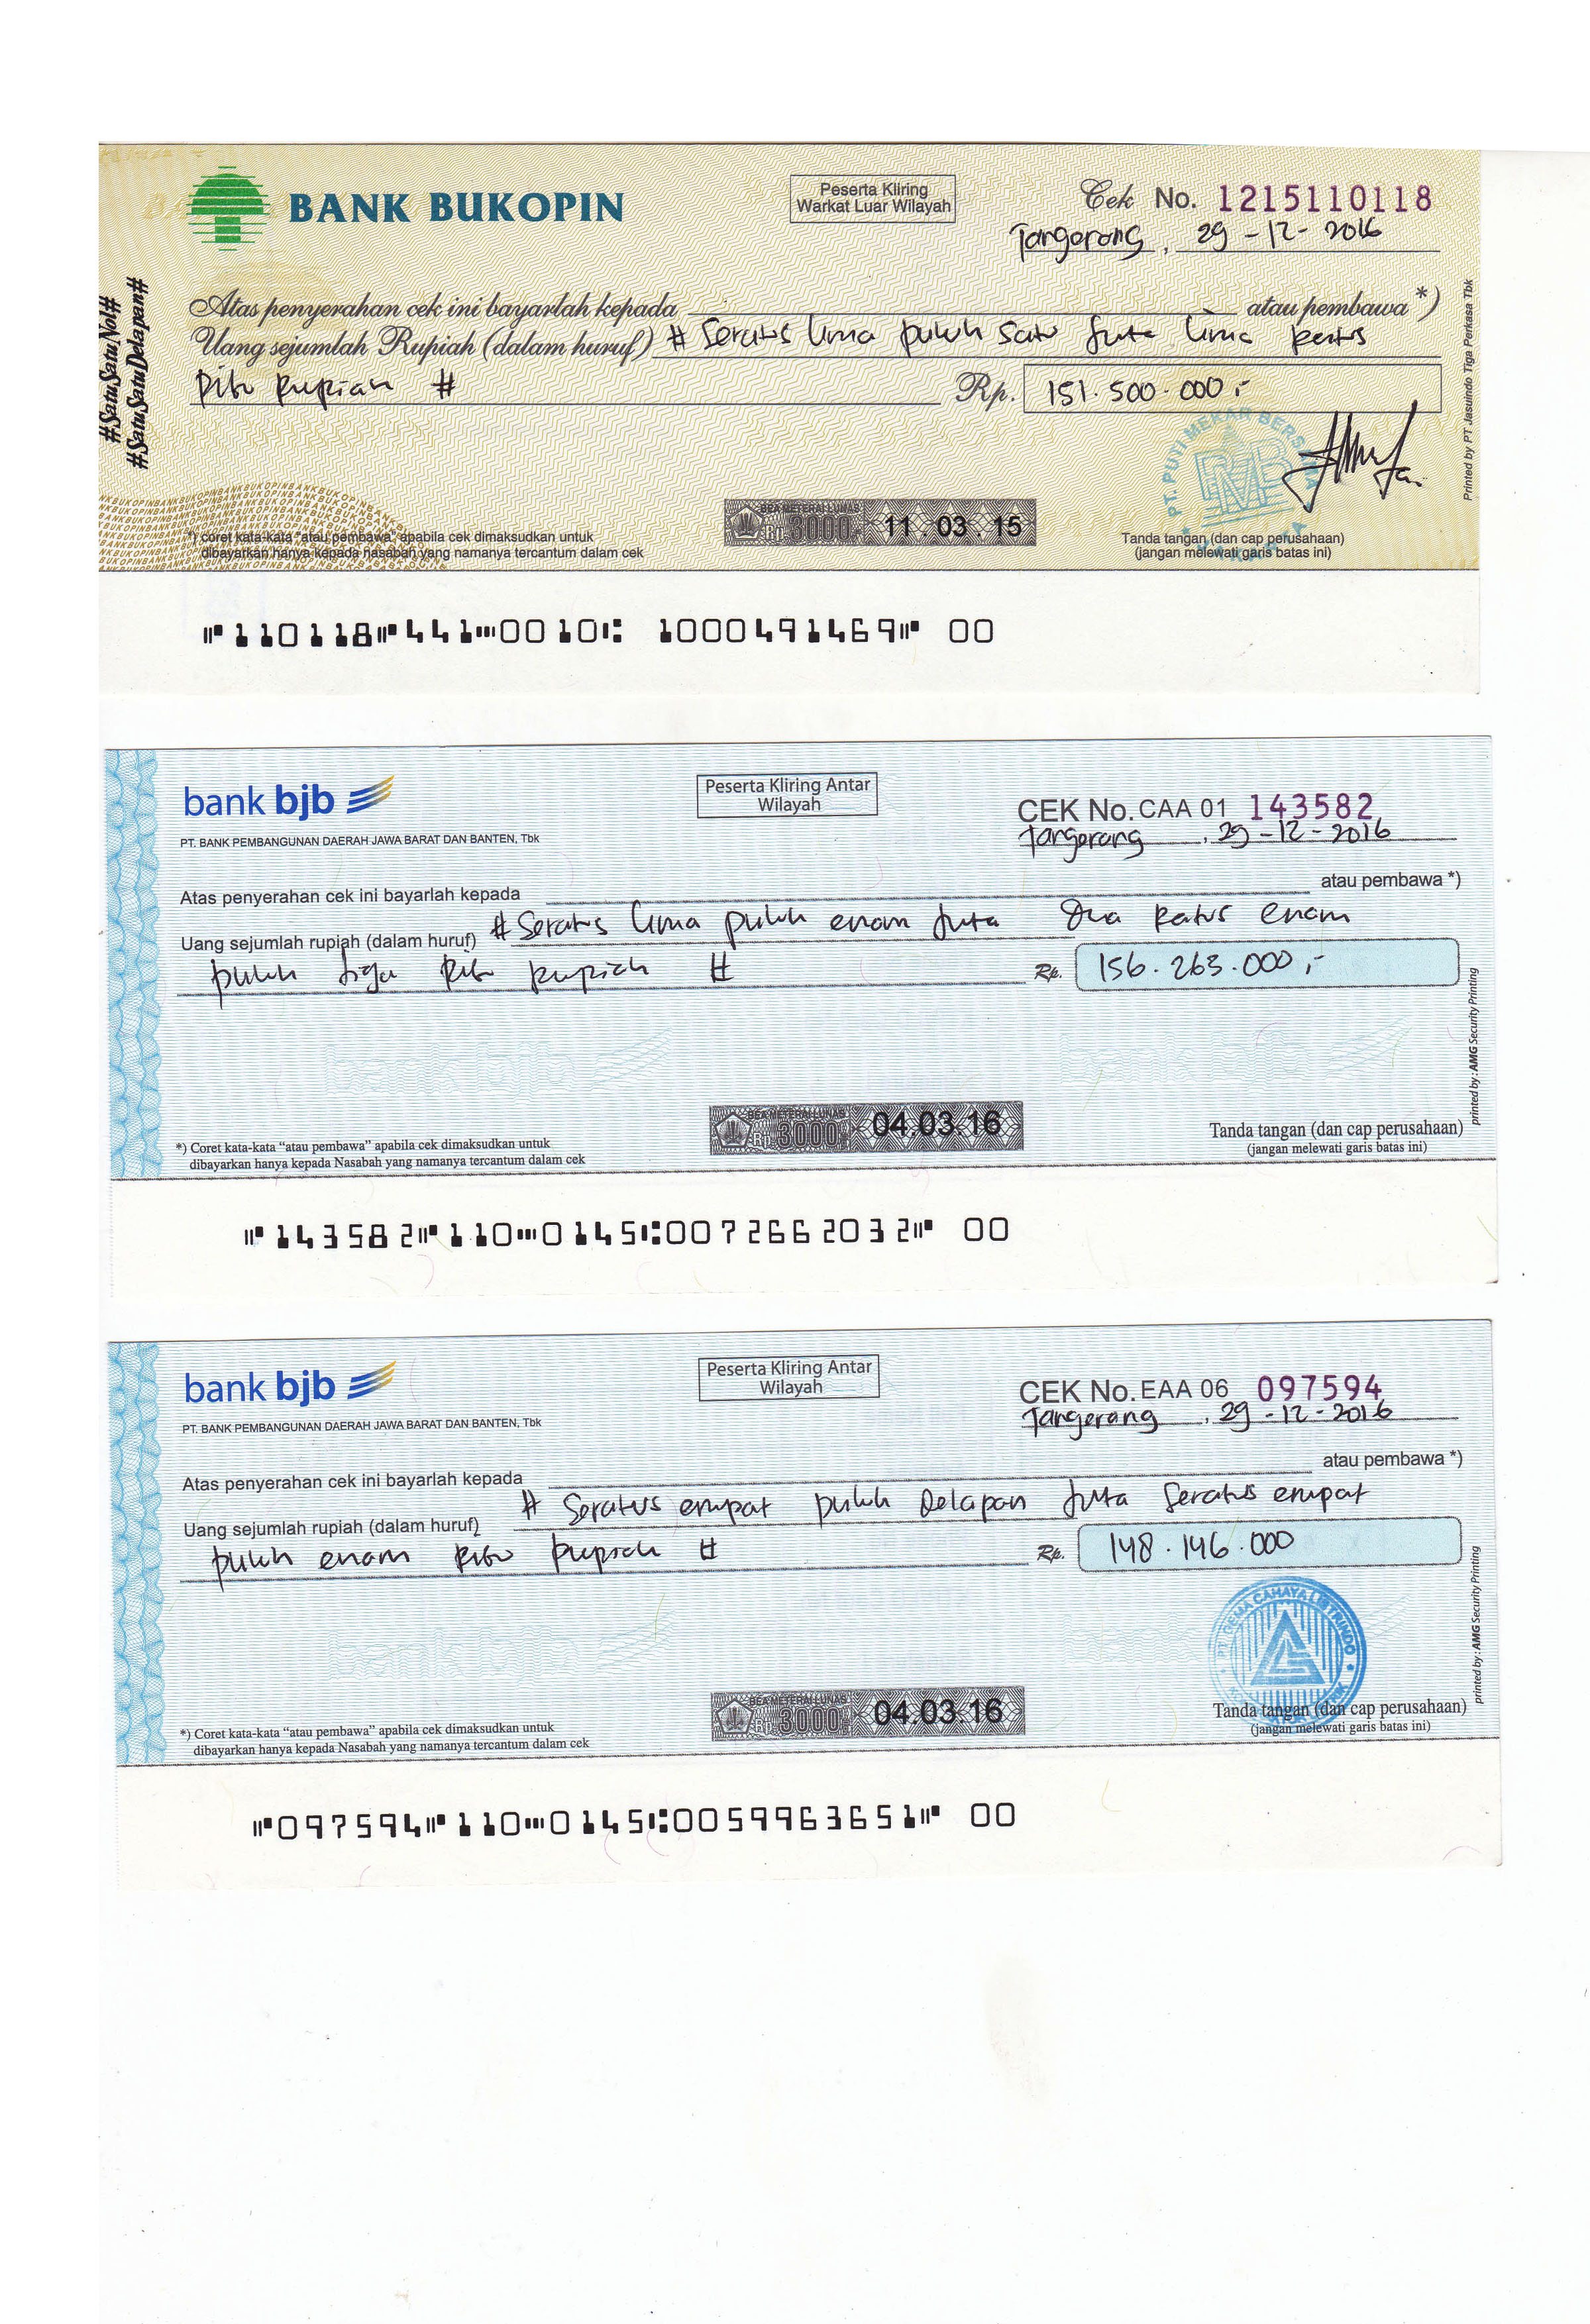 BANK BUKOPIN
Peserta Kliring
Warkat Luar Wilayah
Cek No. 1215110118
Tangerang, 29-12-2016
#SatuSatuNol#
#SatuSatuDelapan#
Atas penyerahan cek ini bayarlah kepada atau pembawa *)
Uang sejumlah Rupiah (dalam huruf) # Seratus lima puluh satu juta lima ratus
Ribu Rupiah #
Rp. 151.500.000,-
PT. PUTI MEKAR BERSAMA
BEA METERAI LUNAS
Rp 3000 11.03.15
*) coret kata-kata "atau pembawa" apabila cek dimaksudkan untuk
dibayarkan hanya kepada nasabah yang namanya tercantum dalam cek
Tanda tangan (dan cap perusahaan)
(jangan melewati garis batas ini)
Printed by PT Jasuindo Tiga Perkasa Tbk
⑈110118⑈441⑉0010⑆ 1000491469⑈ 00
bank bjb
PT. BANK PEMBANGUNAN DAERAH JAWA BARAT DAN BANTEN, Tbk
Peserta Kliring Antar
Wilayah
CEK No. CAA 01 143582
Tangerang, 29-12-2016
Atas penyerahan cek ini bayarlah kepada atau pembawa *)
Uang sejumlah rupiah (dalam huruf) # Seratus lima puluh enam juta Dua Ratus enam
puluh tiga Ribu Rupiah #
Rp. 156.263.000,-
bank bjb
BEA METERAI LUNAS
Rp 3000 04.03.16
*) Coret kata-kata “atau pembawa” apabila cek dimaksudkan untuk
dibayarkan hanya kepada Nasabah yang namanya tercantum dalam cek
Tanda tangan (dan cap perusahaan)
(jangan melewati garis batas ini)
printed by : AMG Security Printing
⑈143582⑈110⑉0145⑆0072662032⑈ 00
bank bjb
PT. BANK PEMBANGUNAN DAERAH JAWA BARAT DAN BANTEN, Tbk
Peserta Kliring Antar
Wilayah
CEK No. EAA 06 097594
Tangerang, 29-12-2016
Atas penyerahan cek ini bayarlah kepada atau pembawa *)
Uang sejumlah rupiah (dalam huruf) # Seratus empat puluh Delapan Juta Seratus empat
puluh enam Ribu Rupiah #
Rp. 148.146.000
PT. GEMA CAHAYA LISTRINDO
BEA METERAI LUNAS
Rp 3000 04.03.16
*) Coret kata-kata “atau pembawa” apabila cek dimaksudkan untuk
dibayarkan hanya kepada Nasabah yang namanya tercantum dalam cek
Tanda tangan (dan cap perusahaan)
(jangan melewati garis batas ini)
printed by : AMG Security Printing
⑈097594⑈110⑉0145⑆0059963651⑈ 00